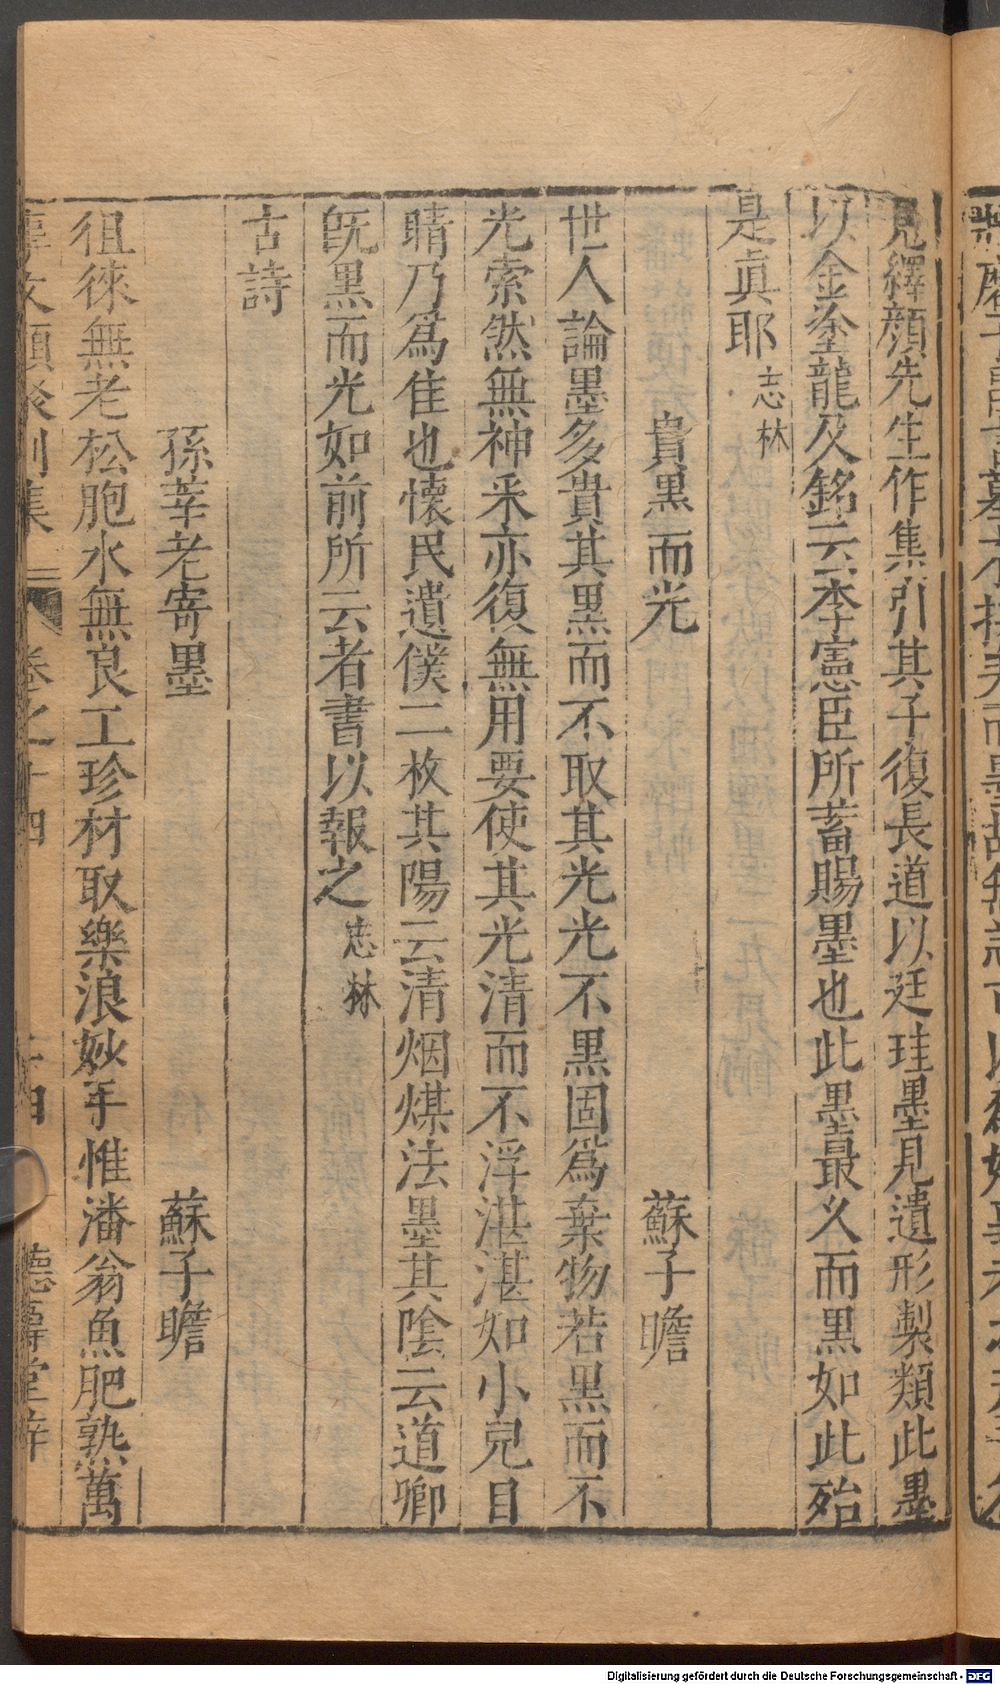 見繹顏先生作集引其子復長道以廷珪墨見遺形製類此墨
以金塗龍及銘云李憲臣所蓄賜墨也此墨最久而黒如此殆
是眞耶 志林
貴黒而光 蘇子瞻
世人論墨多貴其黒而不取其光光不黒固爲棄物若黒而不
光索然無神釆亦復無用要使其光清而不浮湛湛如小兒目
睛乃爲佳也懐民遺僕二枚其陽云清烟煤法墨其陰云道卿
旣黒而光如前所云者書以報之 志林
古詩
孫莘老寄墨 蘇子瞻
徂徠無老松胞水無良工珍材取樂浪妙手惟潘翁魚肥熟萬
事文類聚別集 卷之十四 二十四 德壽堂梓
Digitalisierung gefördert durch die Deutsche Forschungsgemeinschaft - DFG